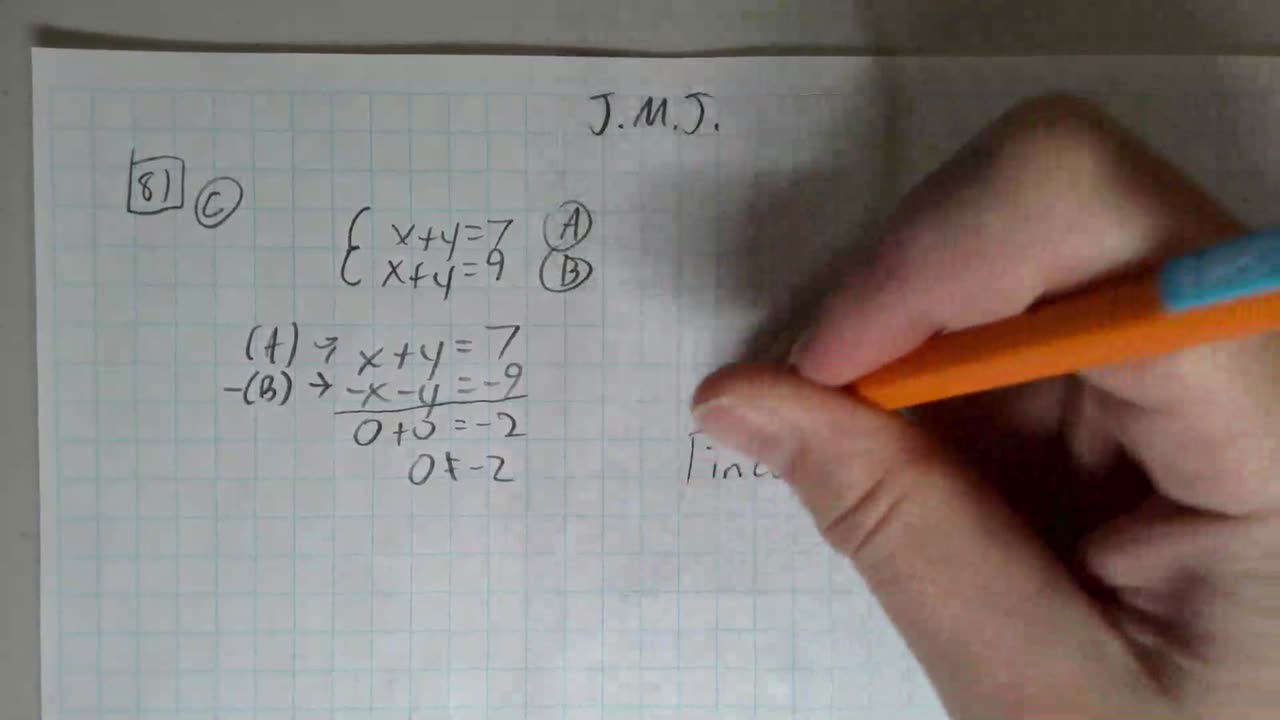 J.M.J.
8) C
{ x+y=7 A
x+y=9 B
(A) → x+y=7
-(B) → -x-y=-9
0+0=-2
0≠-2